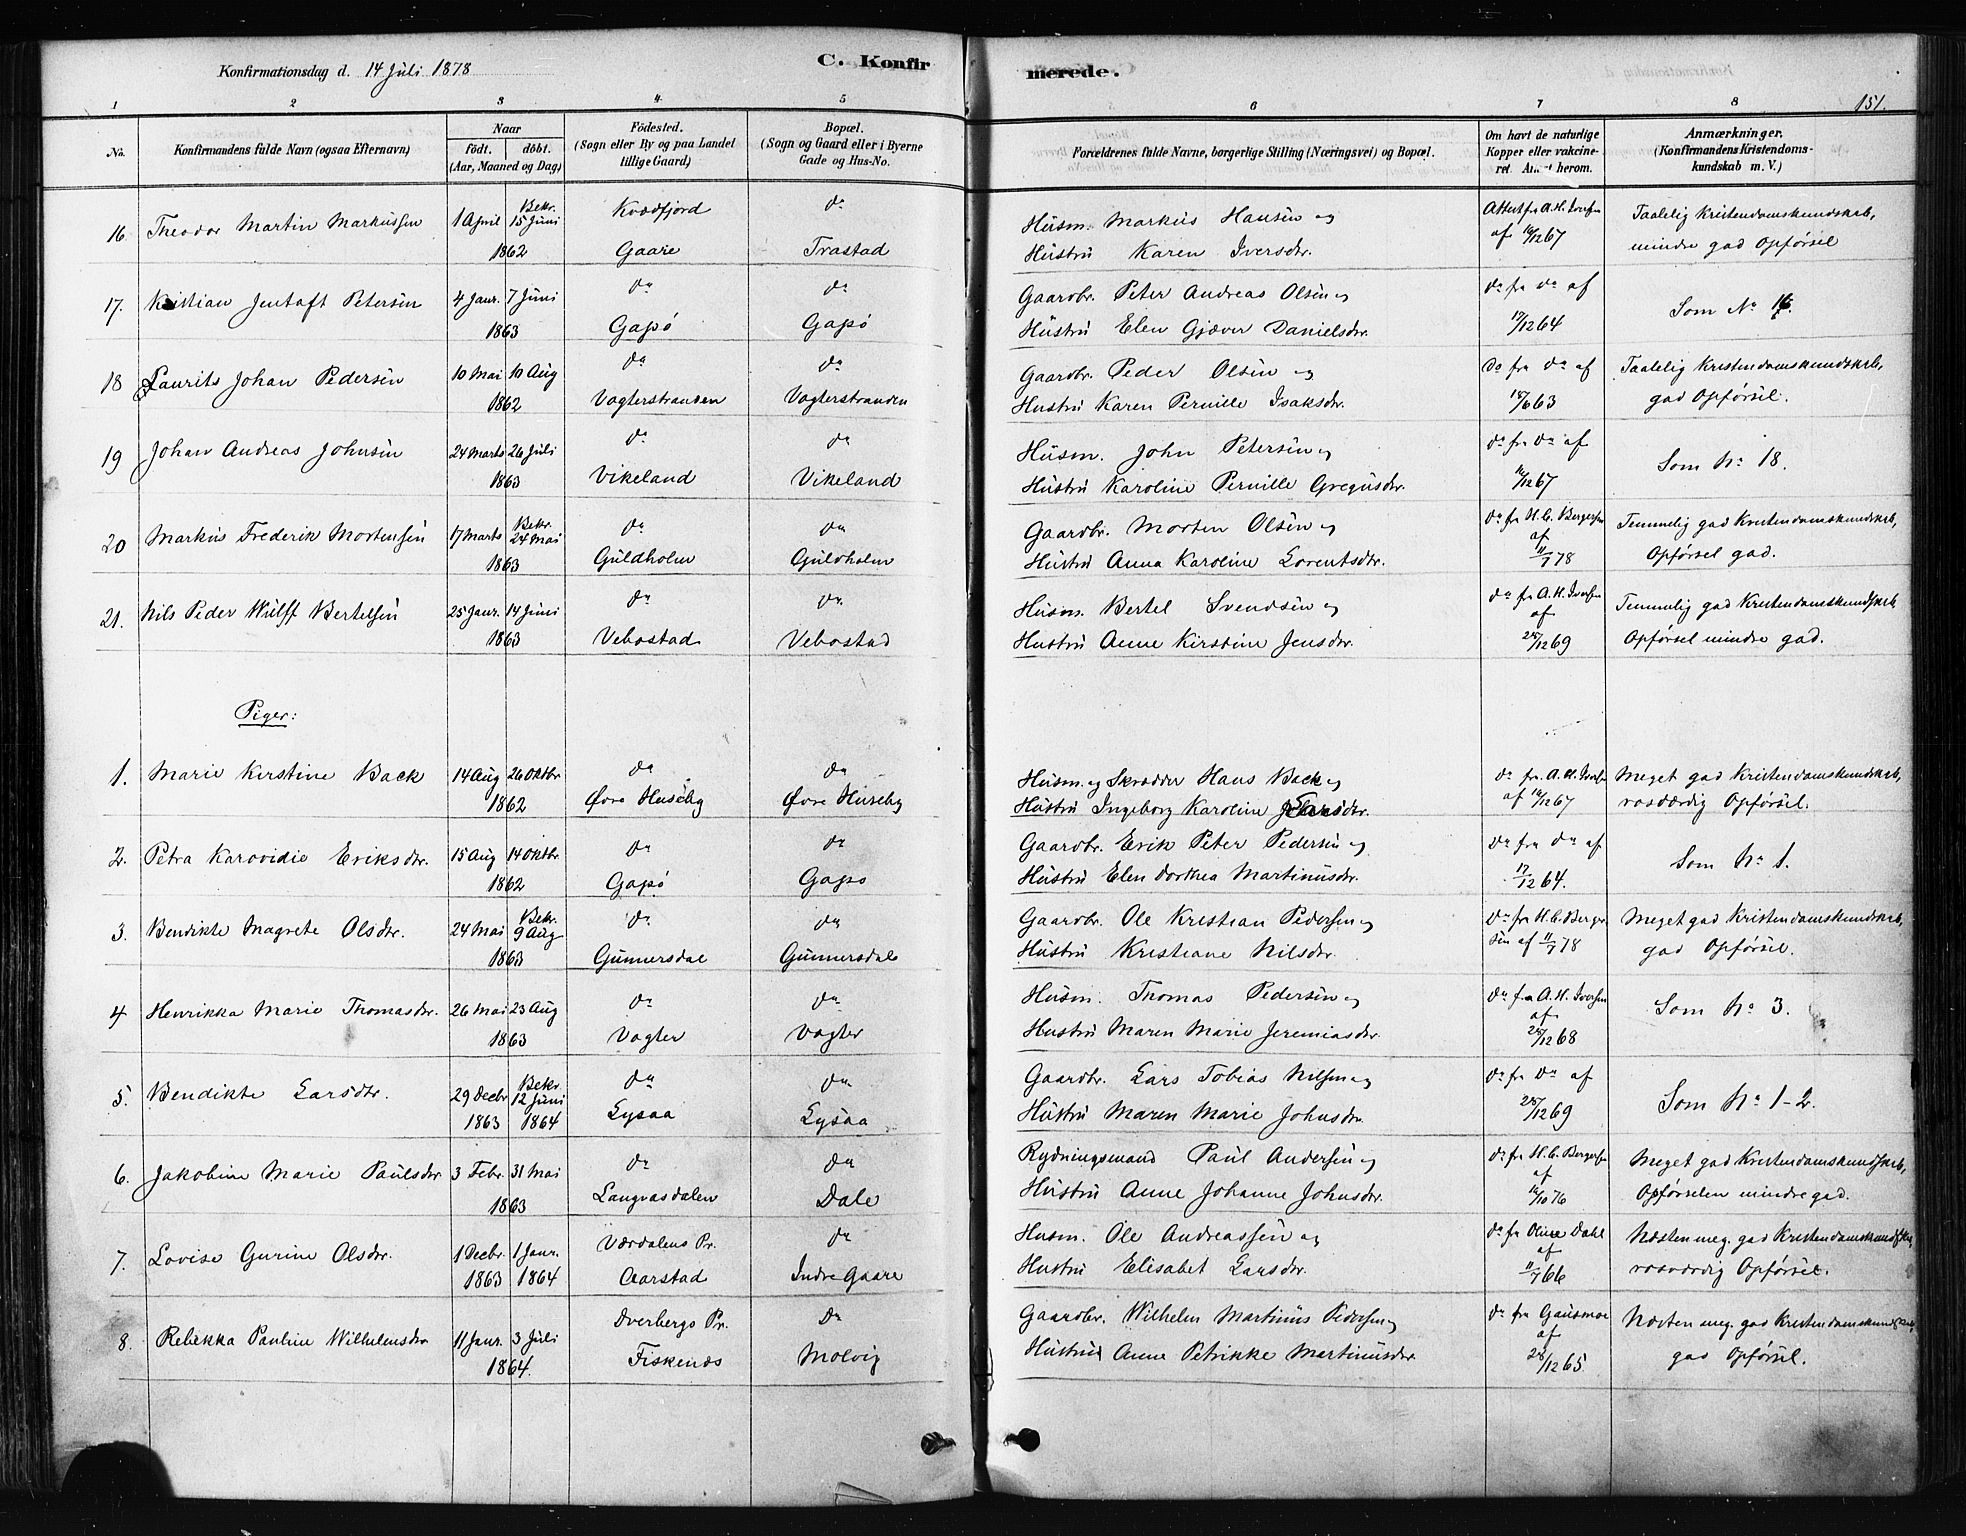 Konfirmationsdag d. 14 Juli 1878
C. Konfirmerede.
151.
1 2 3 4 5 6 7 8
No. | Konfirmandens fulde Navn (ogsaa Efternavn) | Naar født. døbt. (Aar, Maaned og Dag) | Födested. (Sogn eller By og paa Landet tillige Gaard) | Bopæl. (Sogn og Gaard eller i Byerne Gade og Hus-No. | Forældrenes fulde Navne, borgerlige Stilling (Næringsvei) og Bopæl. | Om havt de naturlige Kopper eller vakcineret. Attest herom. | Anmærkninger. (Konfirmandens Kristendomskundskab m. V.)
16. Theodor Martin Markussen | 1 April | Bekr. 15 Juni | 1862 | Kvædfjord Gaare | do Trastad | Husm. Markus Hansen og Hustru Karen Iversdtr. | Attest fra A. H. Iversen af 16/12 67 | Taalelig Kristendomskundskab, mindre god Opførsel
17. Kristian Jentoft Petersen | 4 Janr. | 7 Juni | 1863 | do Gapø | do Gapø | Gaardbr. Peter Andreas Olsen og Hustru Elen Gjæver Danielsdtr. | do fra do af 17/12 64 | Som No 16.
18 Laurits Johan Pedersen | 10 Mai | 10 Aug | 1862 | do Vagterstranden | do Vagterstranden | Gaardbr. Peder Olsen og Hustru Karen Pernille Isaksdtr. | do fra do af 18/6 63 | Taalelig Kristendomskundskab, god Opførsel.
19 Johan Andreas Johnsen | 24 Marts | 26 Juli | 1863 | do Vikeland | do Vikeland | Husm. John Petersen og Hustru Karoline Pernille Gregusdtr. | do fra do af 16/12 67 | Som No 18.
20 Markus Frederik Mortensen | 17 Marts | Bekr. 24 Mai | 1863 | do Guldholm | do Guldholm | Gaardbr. Morten Olsen og Hustru Anna Karoline Lorentsdtr. | do fra H. C. Bergersen af 11/7 78 | Temmelig god Kristendomskundskab, Opførsel god.
21. Nils Peder Wulff Bertelsen | 25 Janr. | 14 Juni | 1863 | do Vebostad | do Vebostad | Husm. Bertel Svendsen og Hustru Anne Kirstine Jensdtr. | do fra A. H. Iversen af 28/12 69 | Temmelig god Kristendomskundskab, Opførsel mindre god.
Piger:
1. Marie Kirstine Back | 14 Aug | 26 Oktbr | 1862 | do Øvre Huseby | do Øvre Huseby | Husm. og Skrædder Hans Back og Hustru Ingeborg Karoline Larsdtr. | do fra A. H. Iversen af 16/12 67 | Meget god Kristendomskundskab, rosværdig Opførsel.
2. Petra Karovidie Eriksdtr. | 15 Aug | 14 Oktbr | 1862 | do Gapø | do Gapø | Gaardbr. Erik Peter Pedersen og Hustru Elen Dorthea Martinusdtr. | do fra do af 17/12 64. | Som No 1.
3. Bendikte Magrete Olsdtr. | 24 Mai | Bekr. 9 Aug | 1863 | do Gunnersdal | do Gunnersdal | Gaardbr. Ole Kristian Pedersen og Hustru Kristiane Nilsdtr. | do fra H. C. Bergersen af 11/7 78 | Meget god Kristendomskundskab, god Opførsel.
4 Henrikka Marie Thomasdtr. | 26 Mai | 23 Aug | 1863 | do Vagter | do Vagter | Husm. Thomas Pedersen og Hustru Maren Marie Jeremiasdtr. | do fra A. H. Iversen af 28/12 68 | Som No 3.
5. Bendikte Larsdtr. | 29 Decbr 1863 | Bekr. 12 Juni 1864 | do Lysaa | do Lysaa | Gaardbr. Lars Tobias Nilsen og Hustru Maren Marie Johnsdtr. | do fra do af 28/12 69 | Som No 1-2.
6. Jakobine Marie Paulsdtr | 3 Febr. | 31 Mai | 1863 | do Langvasdalen | do Dale | Rydningsmand Paul Andersen og Hustru Anne Johanne Johnsdtr. | do fra H. C. Bergersen af 16/10 76 | Meget god Kristendomskundskab, Opførselen mindre god.
7. Lovise Gurine Olsdtr. | 1 Decbr. 1863 | 1 Janr. 1864 | Værdalens Pr. Aarstad | do Indre Gaare | Husm. Ole Andreassen og Hustru Elisabet Larsdtr. | do fra Oline Dahl af 11/7 66 | Næsten meg. god Kristendomskundskab, rosværdig Opførsel.
8. Rebekka Pauline Wilhelmsdtr | 11 Janr. | 3 Juli | 1864. | Dverbergs Pr. Fiskenæs | Do Molvig | Gaardbr. Wilhelm Martinus Pedersen og Hustru Anne Petrikke Martinusdtr | do fra Gausmoe af 28/12 65 | Næsten meg. god Kristendomskundskab, god Opførsel.